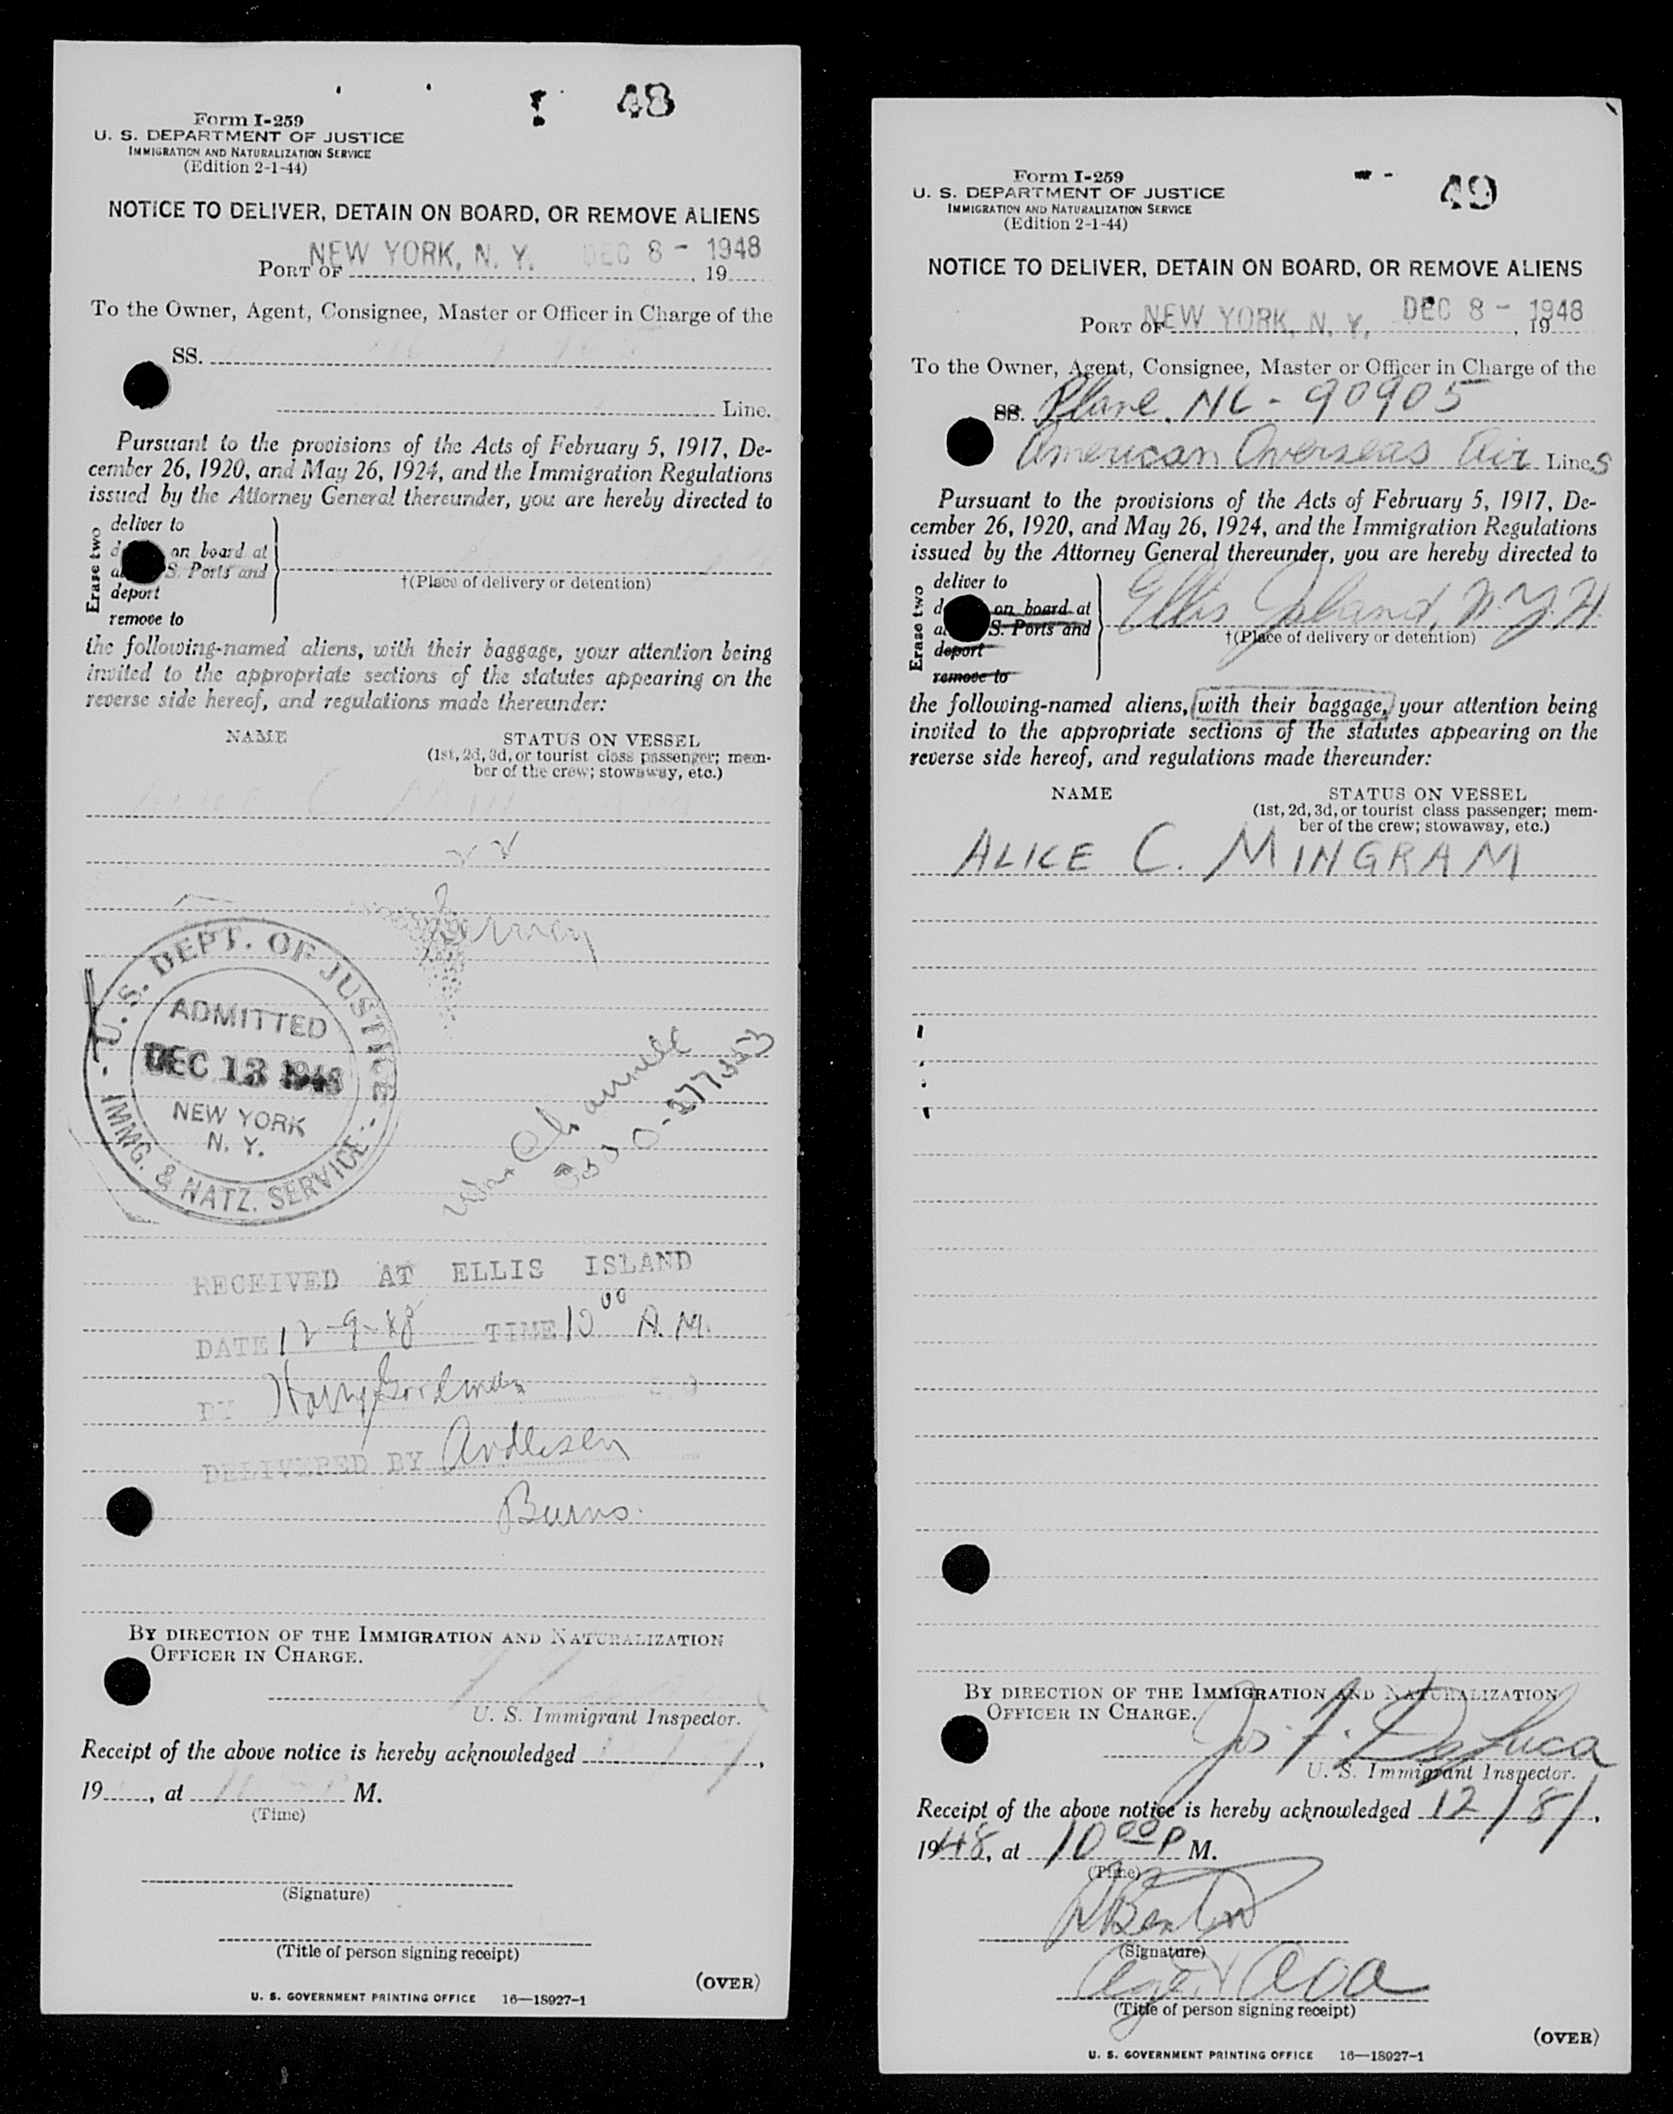 48
Form I-259
U. S. DEPARTMENT OF JUSTICE
IMMIGRATION AND NATURALIZATION SERVICE
(Edition 2-1-44)
NOTICE TO DELIVER, DETAIN ON BOARD, OR REMOVE ALIENS
NEW YORK, N. Y. DEC 8 - 1948
PORT OF , 19
To the Owner, Agent, Consignee, Master or Officer in Charge of the
SS.
Line.
Pursuant to the provisions of the Acts of February 5, 1917, De-
cember 26, 1920, and May 26, 1924, and the Immigration Regulations
issued by the Attorney General thereunder, you are hereby directed to
Erase two
deliver to
on board at
S. Ports and
deport
remove to
†(Place of delivery or detention)
the following-named aliens, with their baggage, your attention being
invited to the appropriate sections of the statutes appearing on the
reverse side hereof, and regulations made thereunder:
NAME STATUS ON VESSEL
(1st, 2d, 3d, or tourist class passenger; mem-
ber of the crew; stowaway, etc.)
ALICE C. MINGRAM
U. S. DEPT. OF JUSTICE
ADMITTED
DEC 13 1948
NEW YORK
N. Y.
IMMG. & NATZ. SERVICE
RECEIVED AT ELLIS ISLAND
DATE 12-9-48 TIME 10 00 A.M.
BY Harry Goodman
DELIVERED BY Andlesen
Burns.
BY DIRECTION OF THE IMMIGRATION AND NATURALIZATION
OFFICER IN CHARGE.
U. S. Immigrant Inspector.
Receipt of the above notice is hereby acknowledged ,
19 , at M.
(Time)
(Signature)
(Title of person signing receipt)
(OVER)
U. S. GOVERNMENT PRINTING OFFICE 16—18927-1
49
Form I-259
U. S. DEPARTMENT OF JUSTICE
IMMIGRATION AND NATURALIZATION SERVICE
(Edition 2-1-44)
NOTICE TO DELIVER, DETAIN ON BOARD, OR REMOVE ALIENS
NEW YORK, N. Y. DEC 8 - 1948
PORT OF , 19
To the Owner, Agent, Consignee, Master or Officer in Charge of the
SS. Plane NC-90905
American Overseas Air Lines
Pursuant to the provisions of the Acts of February 5, 1917, De-
cember 26, 1920, and May 26, 1924, and the Immigration Regulations
issued by the Attorney General thereunder, you are hereby directed to
Erase two
deliver to
on board at
S. Ports and
deport
remove to
Ellis Island, N.Y.H.
†(Place of delivery or detention)
the following-named aliens, with their baggage, your attention being
invited to the appropriate sections of the statutes appearing on the
reverse side hereof, and regulations made thereunder:
NAME STATUS ON VESSEL
(1st, 2d, 3d, or tourist class passenger; mem-
ber of the crew; stowaway, etc.)
ALICE C. MINGRAM
BY DIRECTION OF THE IMMIGRATION AND NATURALIZATION
OFFICER IN CHARGE.
Jos. F. DeLuca
U. S. Immigrant Inspector.
Receipt of the above notice is hereby acknowledged 12/8/,
1948, at 10 00 P M.
(Time)
(Signature)
Agent AOA
(Title of person signing receipt)
(OVER)
U. S. GOVERNMENT PRINTING OFFICE 16—18927-1